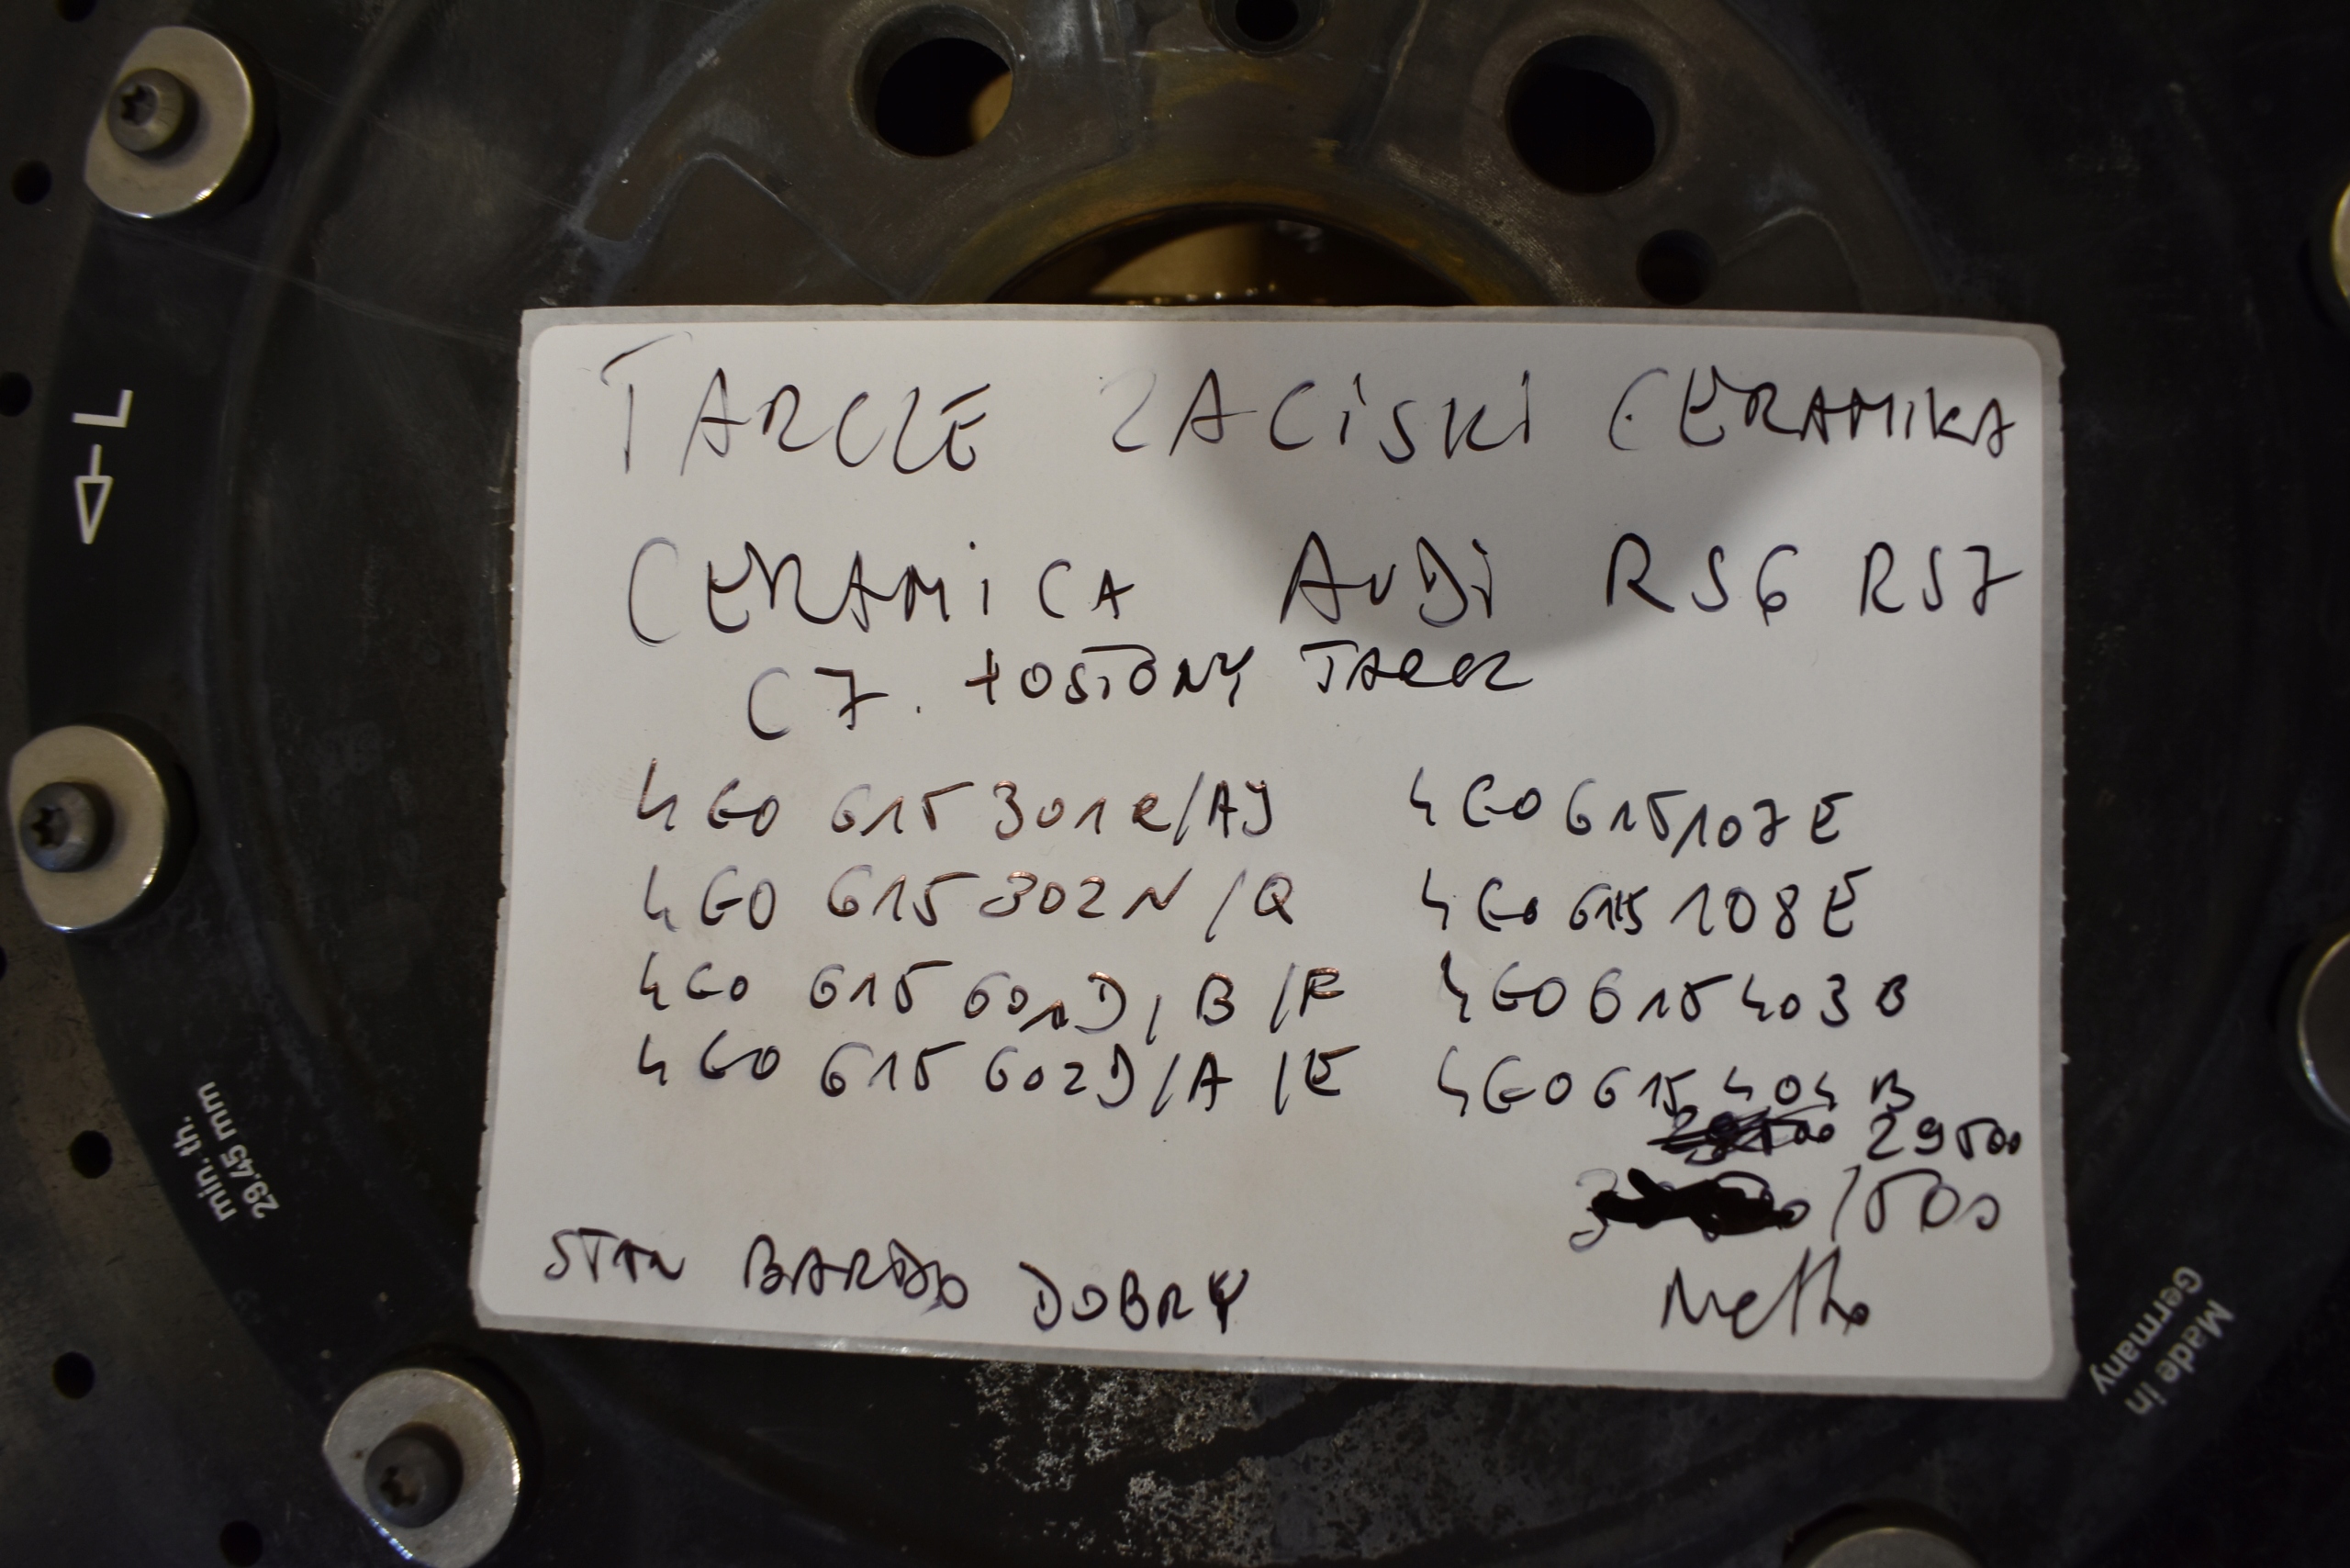 TARCZE ZACiSKi CERAMIKA
CERAMiCA AUDi RS6 RS7
C7. +OSŁONY TARCZ
4G0 615 301R/AJ
4G0 615 302N/Q
4G0 615 601D/B/F
4G0 615 602D/A/E
4G0 615 107E
4G0 615 108E
4G0 615 403B
4G0 615 404B
29500
/500
Netto
STAN BARDZO DOBRY
L
min. th.
29.45 mm
Made in
Germany